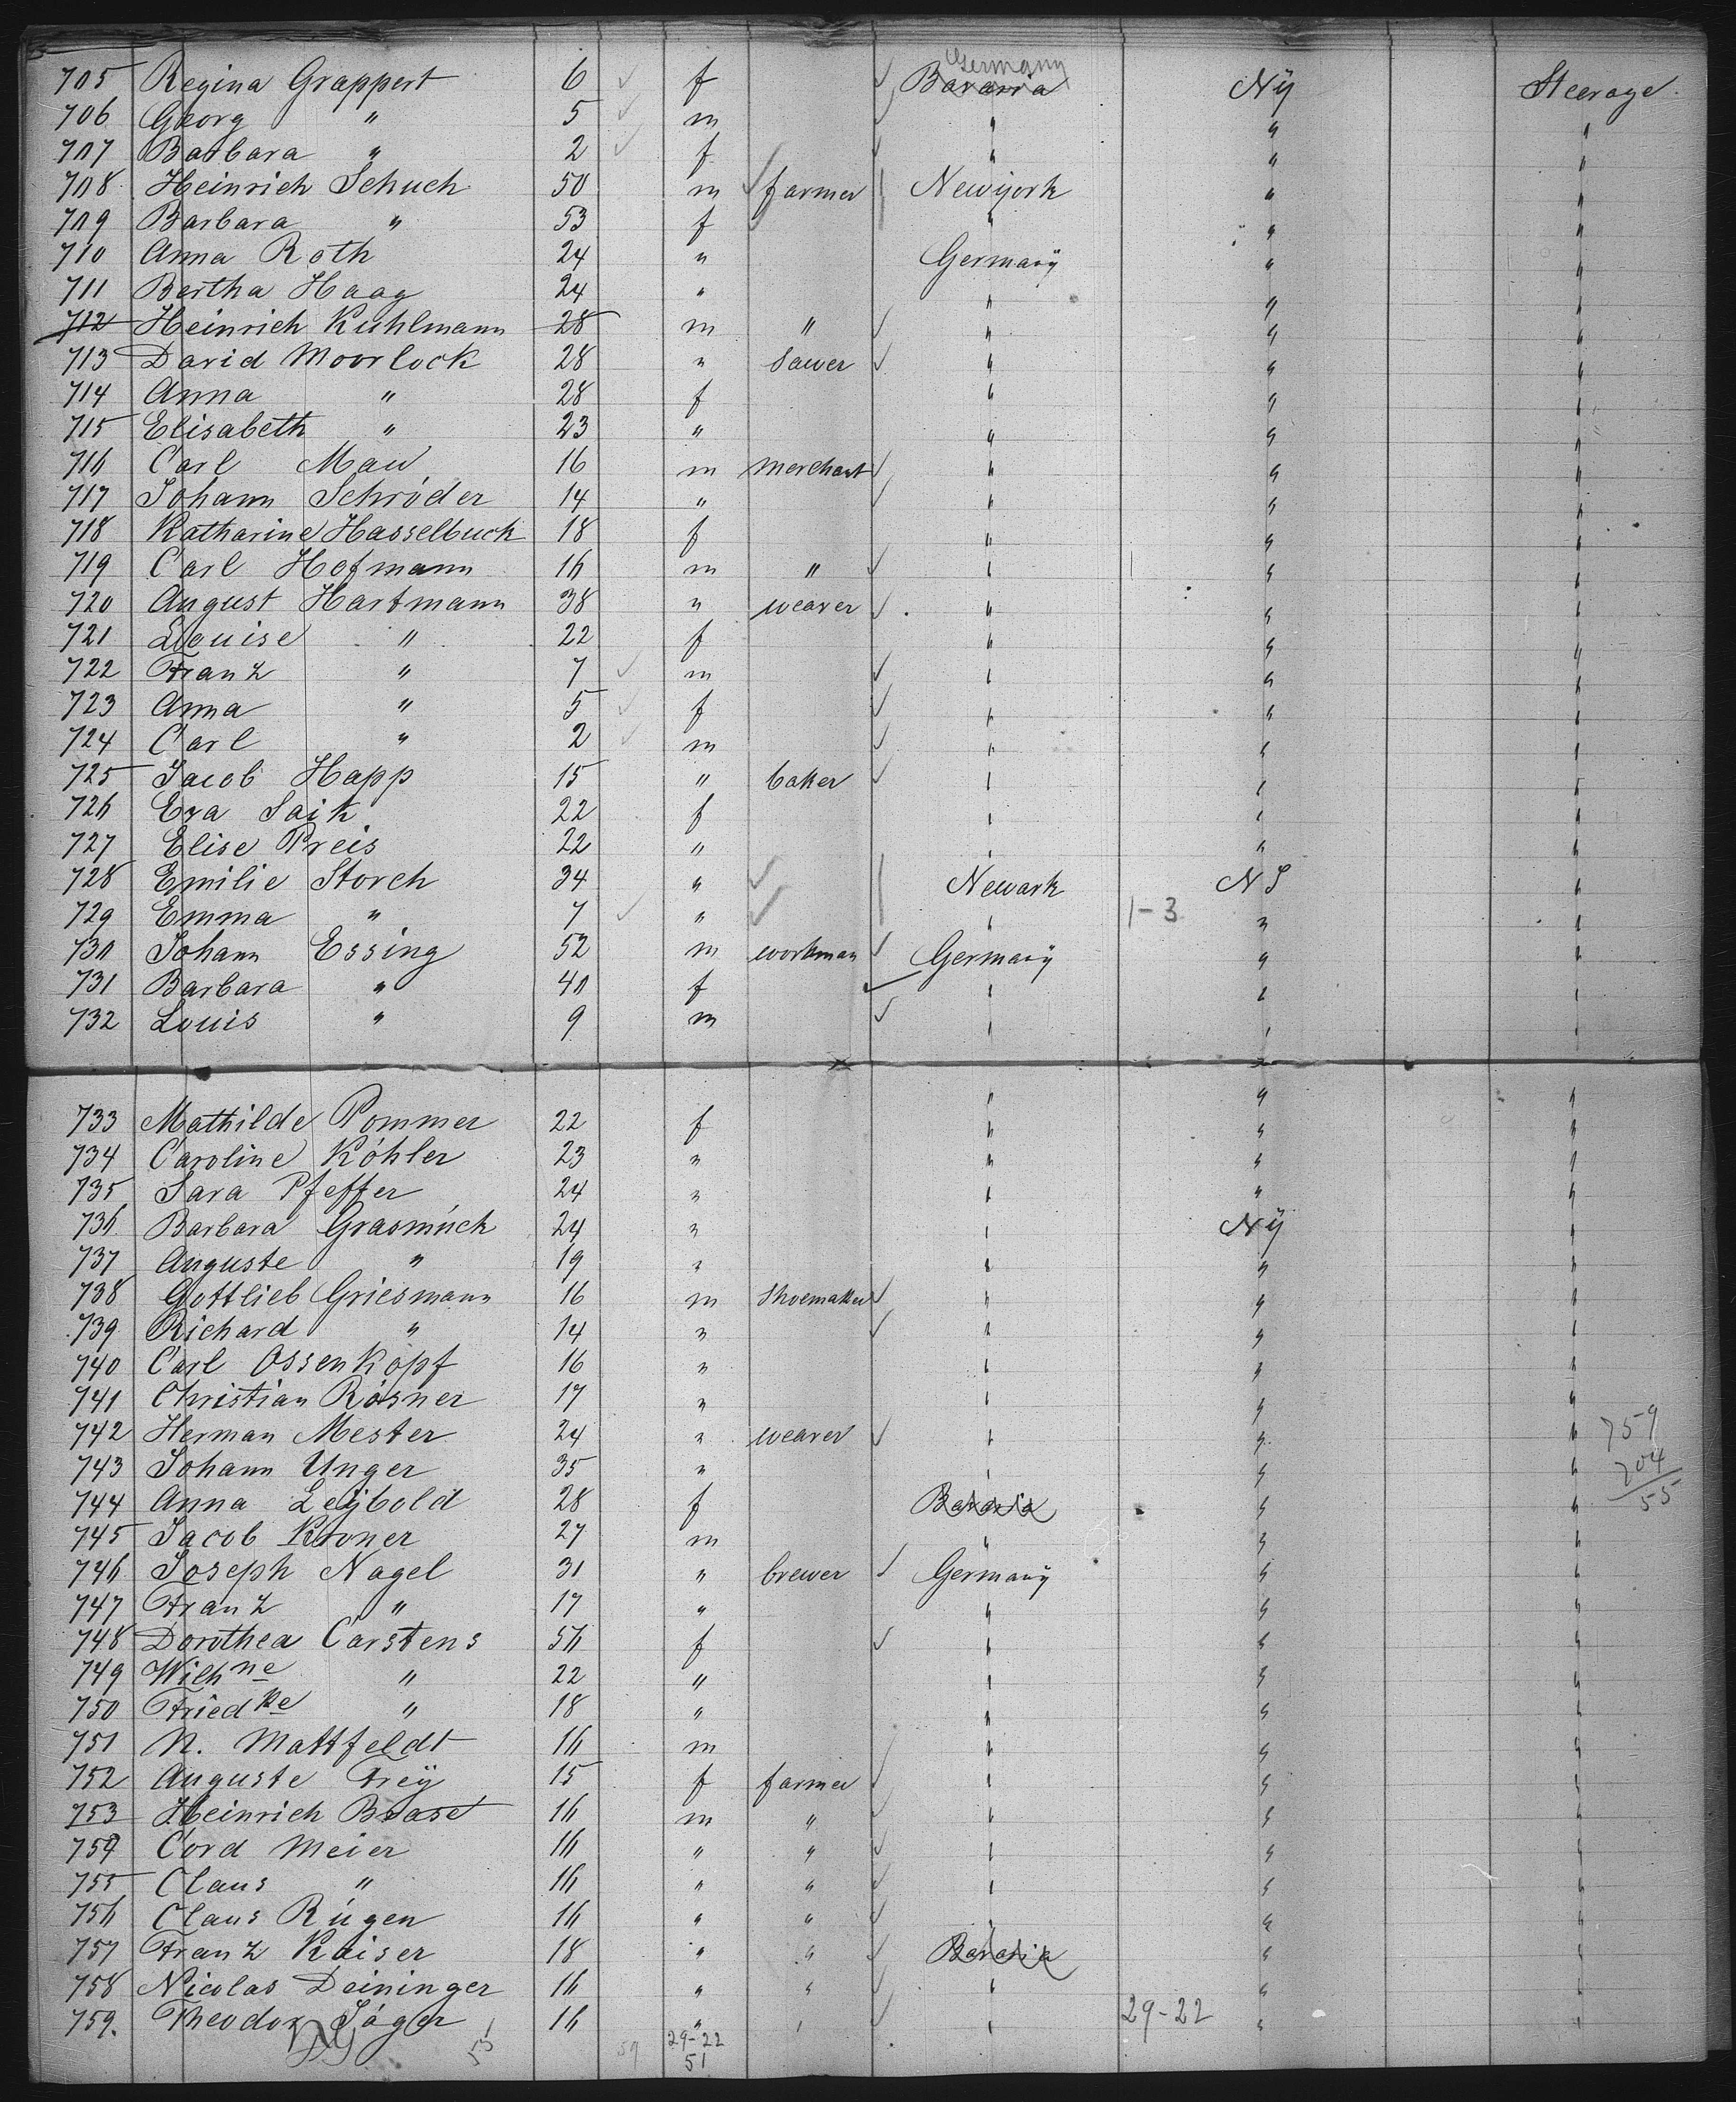 Germany
705 Regina Grappert 6 ✓ f ✓ Bavaria Ny Steerage
706 Georg " 5 ✓ m ✓ " " "
707 Barbara " 2 ✓ f ✓ " " "
708 Heinrich Schuch 50 m ✓ farmer Newyork " "
709 Barbara " 53 f ✓ " " "
710 Anna Roth 24 " Germany " "
711 Bertha Haag 24 " " " "
712 Heinrich Kuhlmann 28 m " ✓ " " "
713 David Moorlock 28 " Sawer ✓ " " "
714 Anna " 28 f " " "
715 Elisabeth " 23 " " " "
716 Carl Mau 16 m merchant ✓ " " "
717 Johann Schröder 14 " ✓ " " "
718 Katharine Hasselbuck 18 f " " "
719 Carl Hofmann 16 m " ✓ " " "
720 August Hartmann 38 " weaver ✓ " " "
721 Louise " 22 f " " "
722 Franz " 7 ✓ m ✓ " " "
723 Anna " 5 ✓ f ✓ " " "
724 Carl " 2 ✓ m ✓ " " "
725 Jacob Happ 15 " baker ✓ " " "
726 Eva Saik 22 f " " "
727 Elise Preis 22 " " " "
728 Emilie Storch 34 " ✓ Newark NJ "
729 Emma " 7 ✓ " ✓ " 1-3 " "
730 Johann Essing 52 m workman ✓ Germany " "
731 Barbara " 40 f ✓ " " "
732 Louis " 9 m ✓ " " "
733 Mathilde Pommer 22 f " " "
734 Caroline Köhler 23 " " " "
735 Sara Pfeffer 24 " " " "
736 Barbara Grasmück 24 " " Ny "
737 Auguste " 19 " " " "
738 Gottlieb Griesmann 16 m Shoemaker ✓ " " "
739 Richard " 14 " ✓ " " "
740 Carl Ossenkopf 16 " " " "
741 Christian Rösner 17 " " " "
742 Herman Mester 24 " weaver ✓ " " " 759
743 Johann Unger 35 " " " " 204
744 Anna Leybold 28 f Bavaria " " 55
745 Jacob Kroner 27 m " " "
746 Joseph Nagel 31 " brewer ✓ Germany " "
747 Franz " 17 " " " "
748 Dorothea Carstens 56 f ✓ " " "
749 Wilhne " 22 " " " "
750 Friedke " 18 " " " "
751 N. Mattfeldt 16 m " " "
752 Auguste Frey 15 f farmer ✓ " " "
753 Heinrich Brase 16 m " ✓ " " "
754 Cord Meier 16 " " ✓ " " "
755 Claus " 16 " " ✓ " " "
756 Claus Rügen 16 " " ✓ " " "
757 Franz Kaiser 18 " " ✓ Bavaria " "
758 Nicolas Deininger 16 " " ✓ " " "
759. Theodor Jäger 16 " " ✓ " 29-22 " "
59 29-22
51